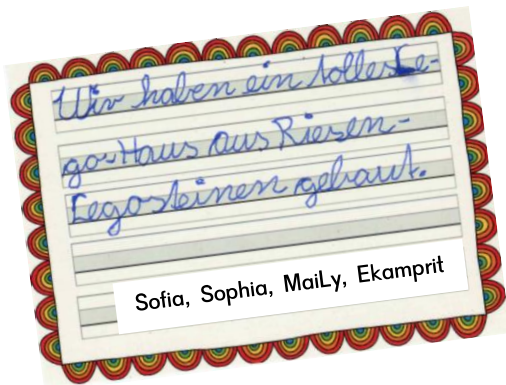 Wir haben ein tolles Le-
go-Haus aus Riesen-
Legosteinen gebaut.
Sofia, Sophia, MaiLy, Ekamprit